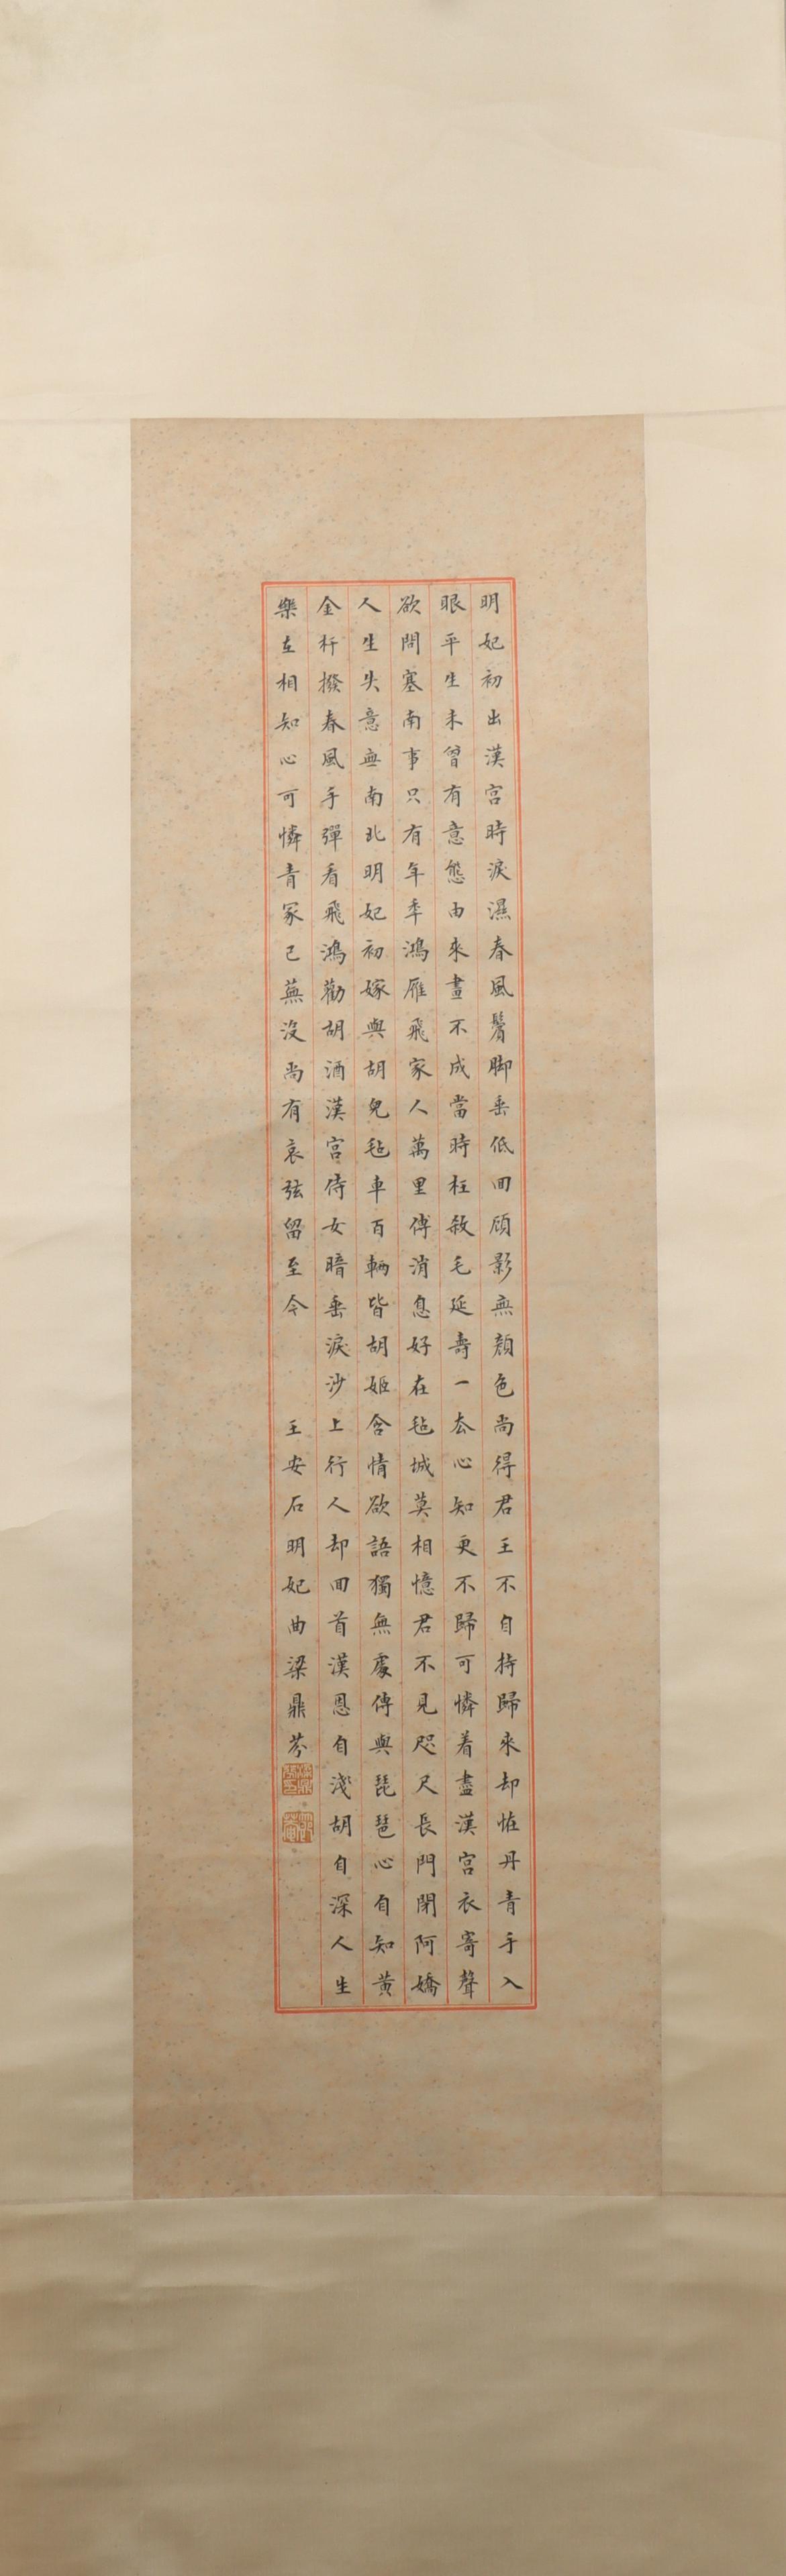 明妃初出漢宮時淚濕春風鬢脚垂低回顧影無顏色尚得君王不自持歸來却怪丹青手入
眼平生未曾有意態由來畫不成當時枉殺毛延壽一去心知更不歸可憐着盡漢宮衣寄聲
欲問塞南事只有年年鴻雁飛家人萬里傳消息好在毡城莫相憶君不見咫尺長門閉阿嬌
人生失意無南北明妃初嫁與胡兒毡車百輛皆胡姬含情欲語獨無處傳與琵琶心自知黃
金杆撥春風手彈看飛鴻勸胡酒漢宮侍女暗垂淚沙上行人却回首漢恩自淺胡自深人生
樂在相知心可憐青冢已蕪沒尚有哀弦留至今 王安石明妃曲梁鼎芬